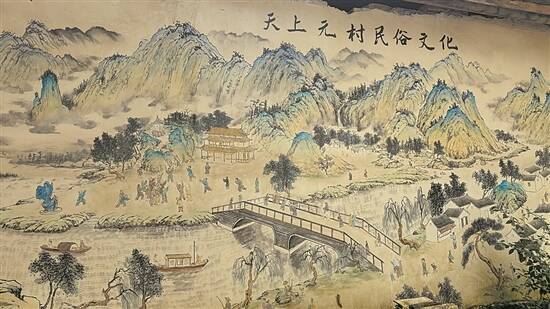 天上元村民俗文化